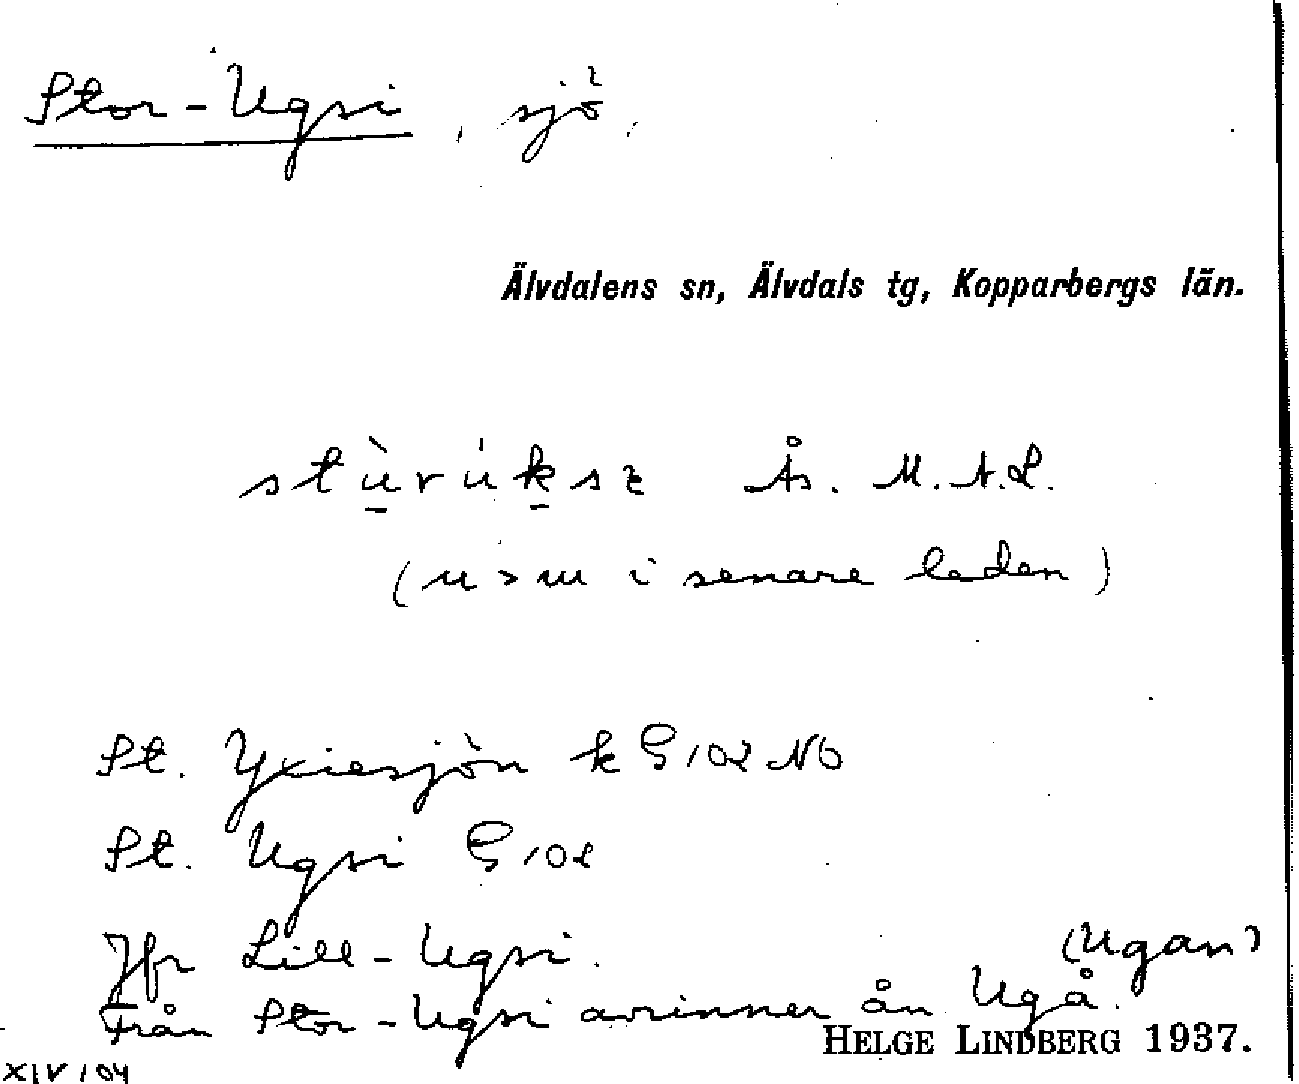 Stor-Ugsi, sjö,
Älvdalens sn, Älvdals tg, Kopparbergs län.
Ås. M.A.L.
(u > ɯ i senare leden)
St. Yxiesjön k G 102 NO
St. Ugsi G 102
Jfr Lill-Ugsi. (Ugan)
Från Stor-Ugsi avrinner ån Ugå.
HELGE LINDBERG 1937.
XIV 104